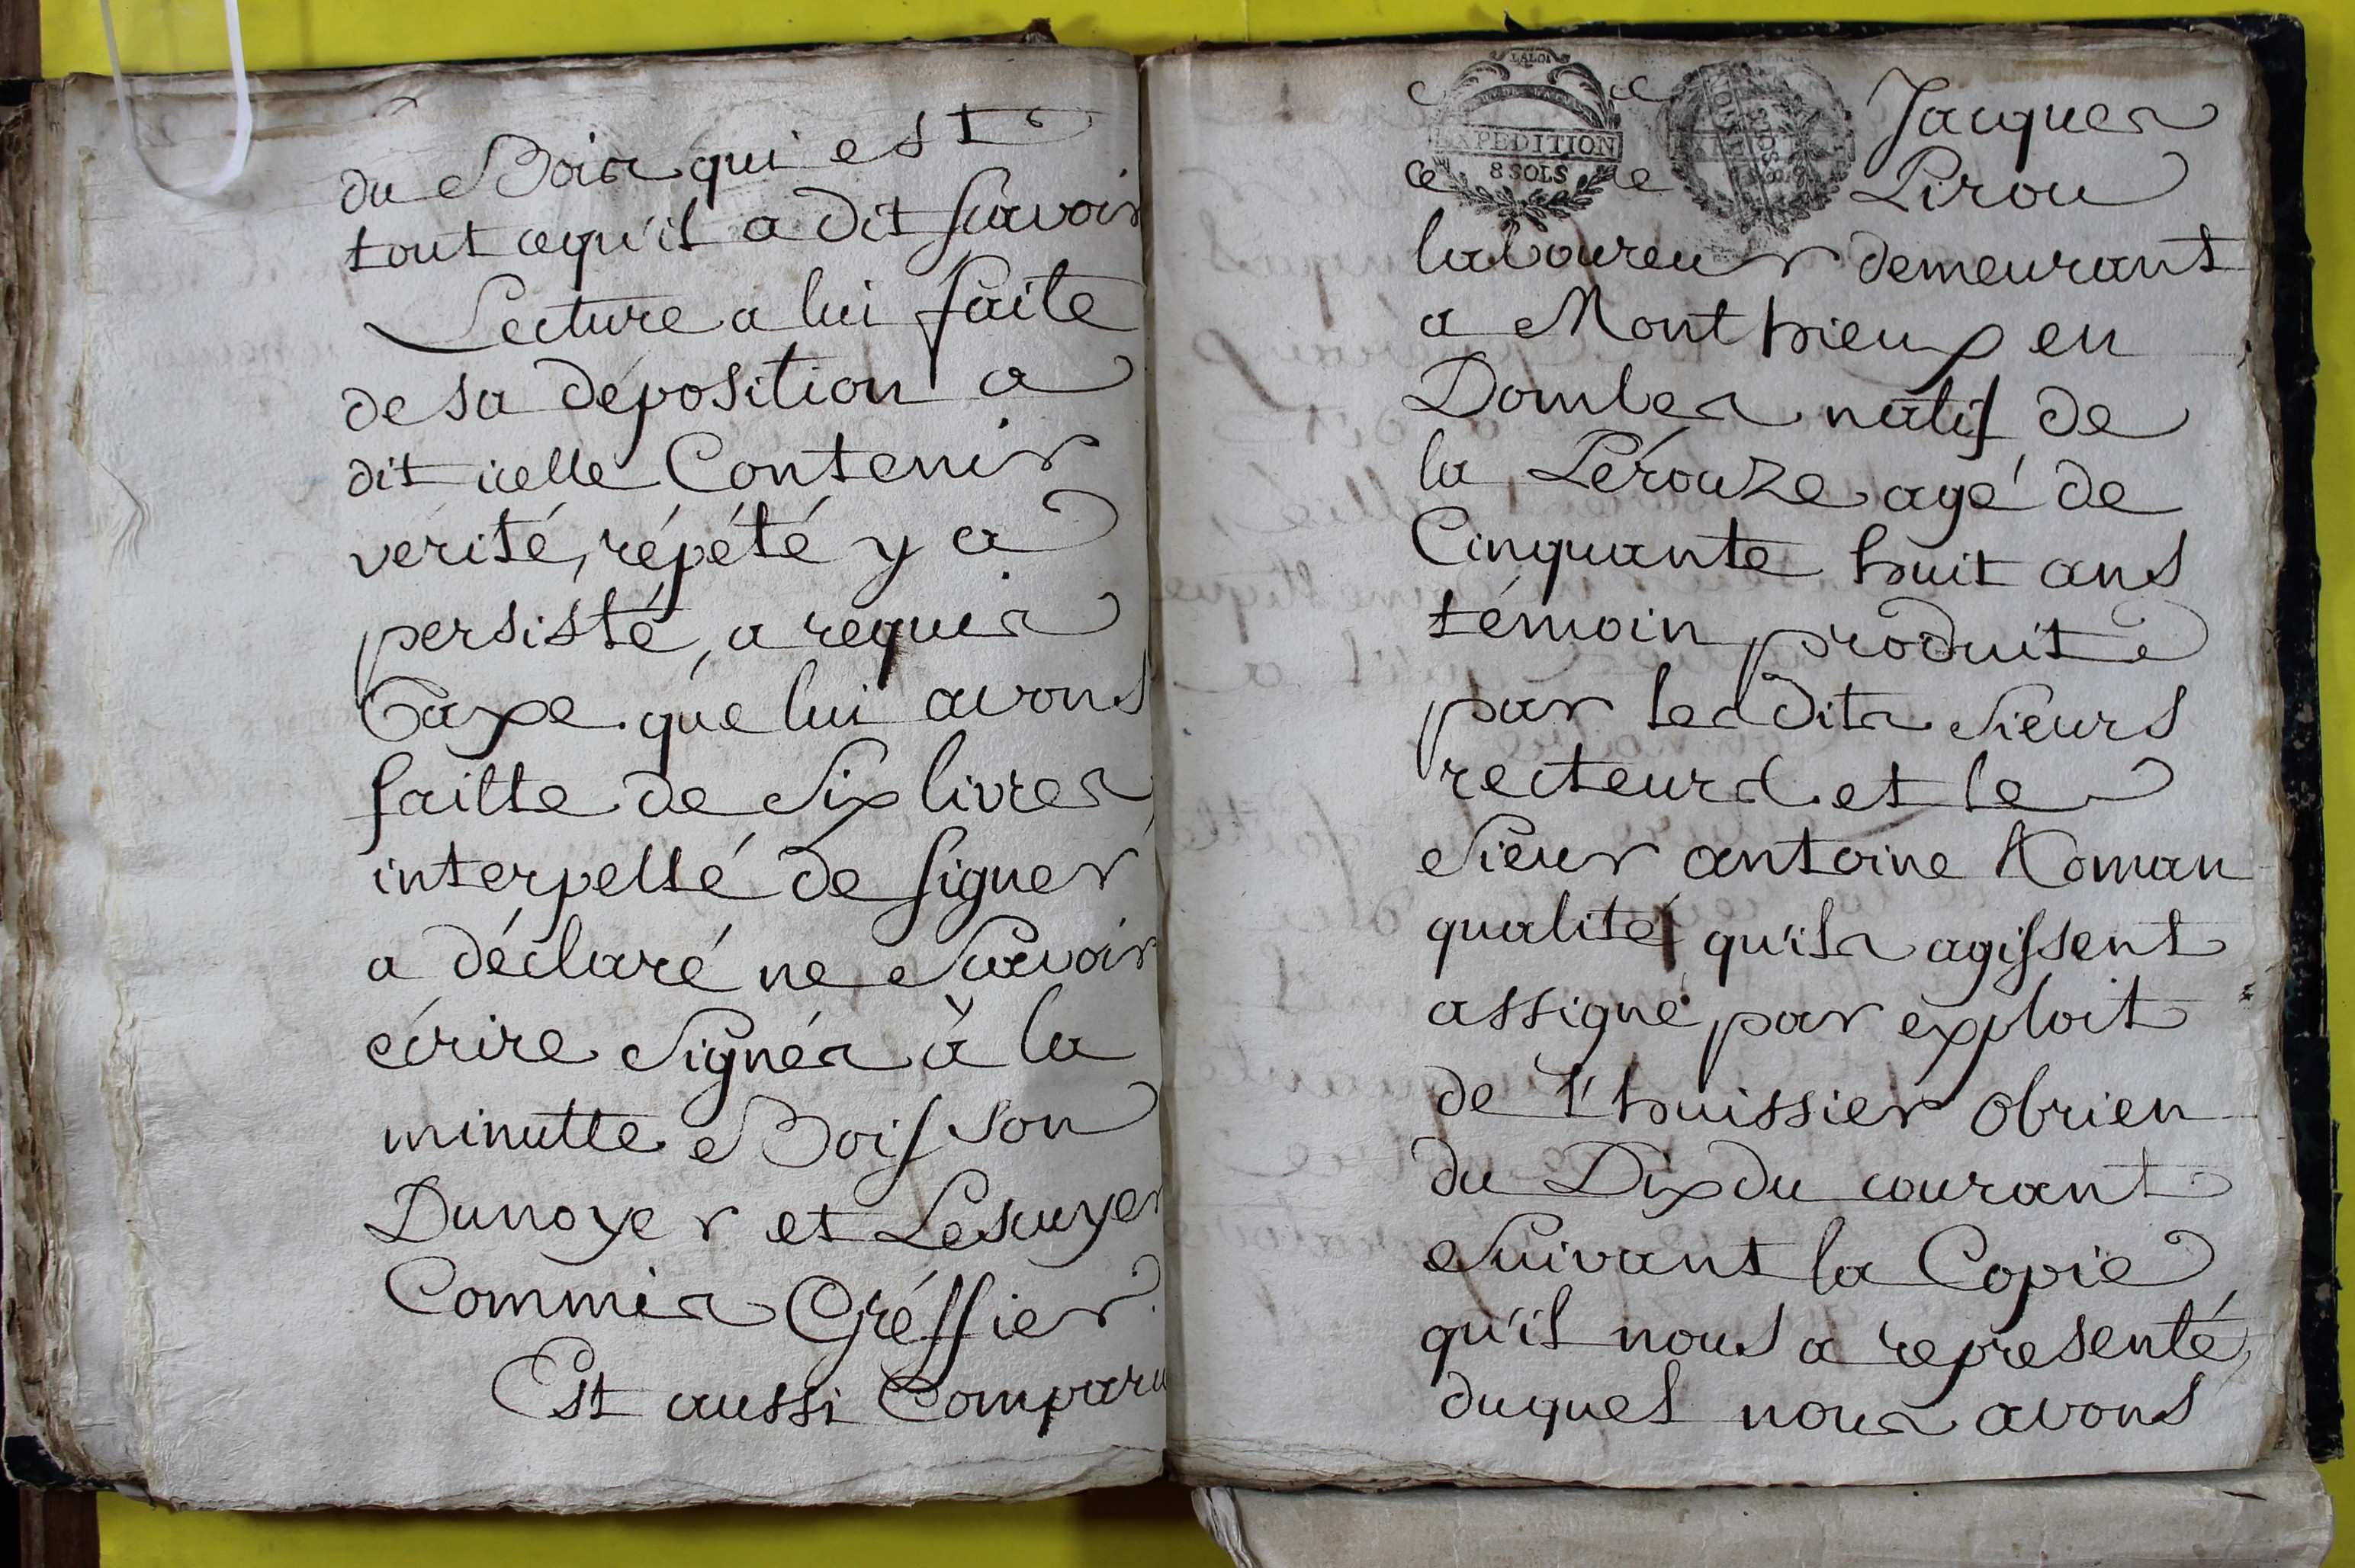 du Bois qui est
tout cequ'il a dit scavoir
Lecture a lui faite
de sa déposition a
dit icelle Contenir
vérité, répété y a
persisté, a requis
Taxe que lui avons
faitte de six livres,
interpellé de signer
a déclaré ne Scavoir
écrire Signés à la
minutte Boisson
Dunoyer et Lescuyer
Commis Gréffier.
Est aussi Comparu
LALOI
EXPEDITION
8 SOLS
Jacques
Pirou
laboureur demeurant
a Monthieux en
Dombes natif de
la Pérouze agé de
Cinquante huit ans
témoin produit
par lesdits sieurs
recteurs et le
sieur antoine Roman
qualité qu'ils agissent
assigné par exploit
de l'huissier Obrien
du Dix du courant
suivant la Copie
qu'il nous a representé,
duquel nous avons